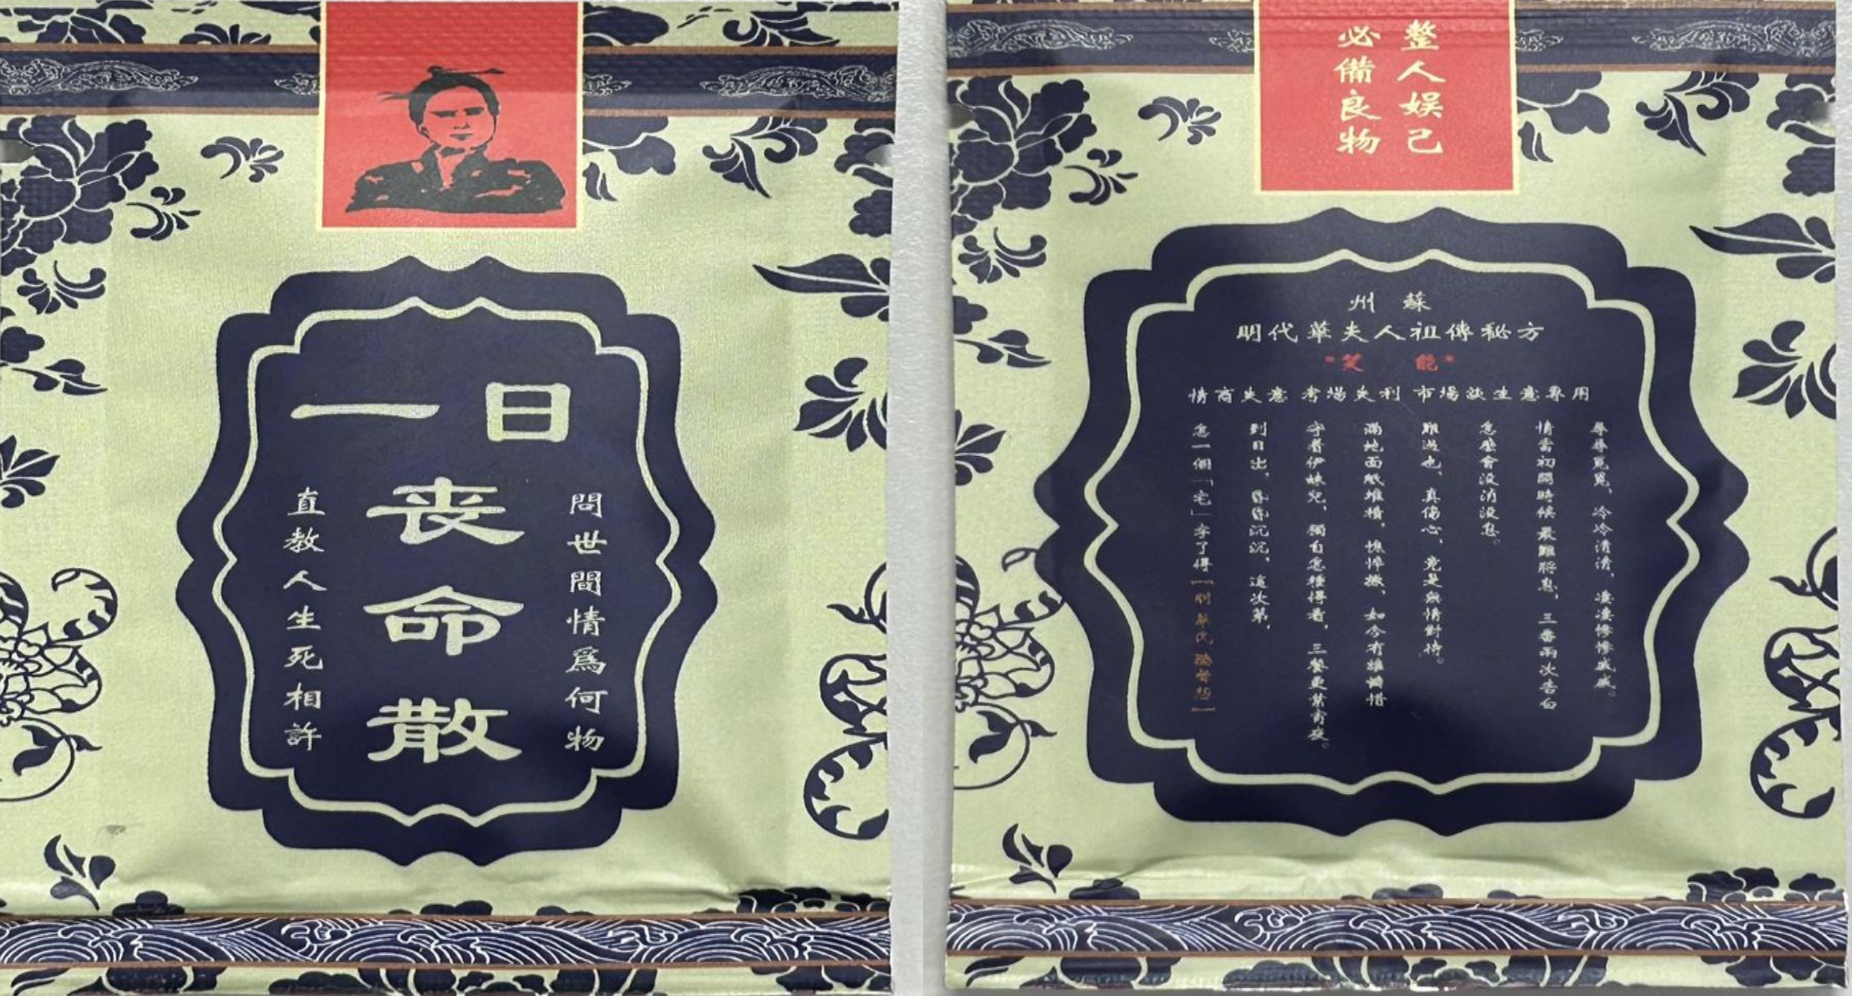 一日
喪
命
散
問世間情為何物
直教人生死相許
整人娛己
必備良物
蘇州
明代華夫人祖傳秘方
"笑 能"
情商失意 考場失利 市場談生意專用
尋尋覓覓，冷冷清清，淒淒慘慘戚戚。
情當初開時候 最難將息，三番兩次告白
怎麼會沒消沒息。
雖過也，真傷心，竟是無情對待。
滿地面紙堆積，憔悴損，如今有誰憐惜
守著伊妹兒，獨自怎種得着，三餐更禁宵夜。
到日出，昏昏沉沉，這次第，
怎一個「宅」字了得